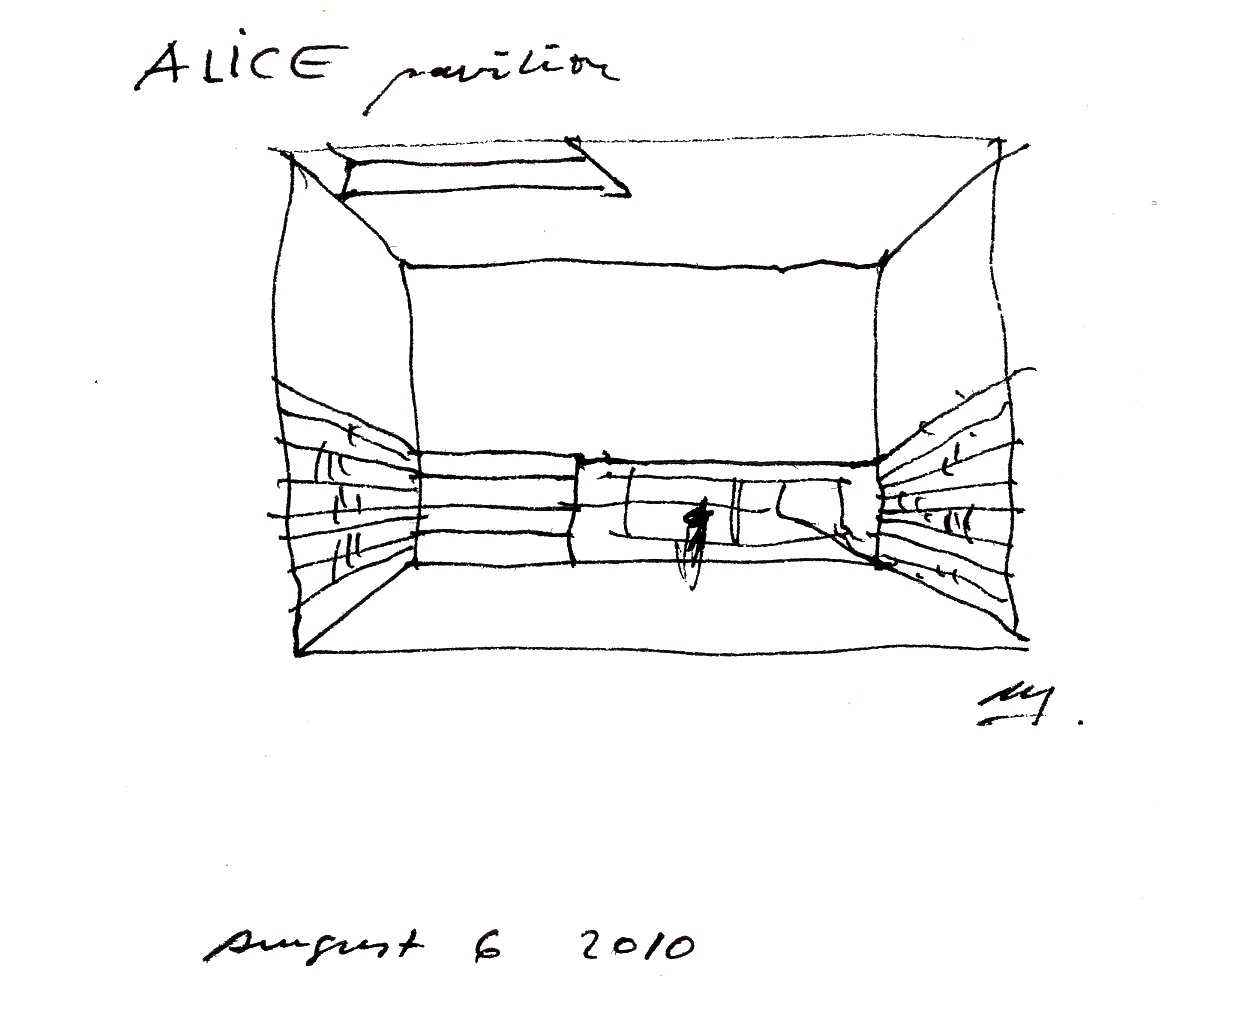 ALiCE pavilion
August 6 2010